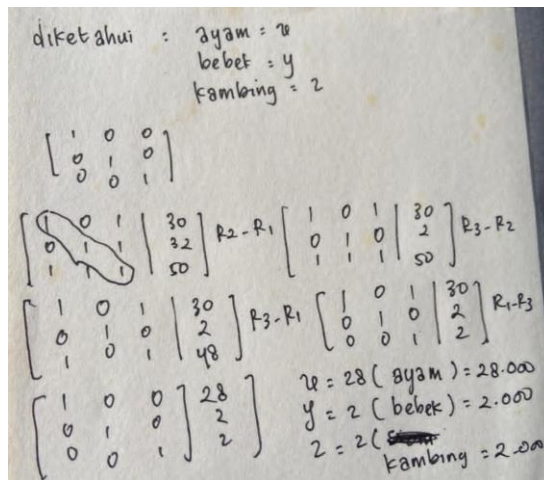 diketahui : ayam = x
bebek = y
kambing = z
[ 1 0 0
0 1 0
0 0 1 ]
[ 1 0 1 | 30
0 1 1 | 32
1 1 1 | 50 ] R2-R1 [ 1 0 1 | 30
0 1 0 | 2
1 1 1 | 50 ] R3-R2
[ 1 0 1 | 30
0 1 0 | 2
1 0 1 | 48 ] R3-R1 [ 1 0 1 | 30
0 1 0 | 2
0 0 1 | 2 ] R1-R3
[ 1 0 0 | 28
0 1 0 | 2
0 0 1 | 2 ]
x = 28 ( ayam ) = 28.000
y = 2 ( bebek ) = 2.000
z = 2 (
kambing = 2.000